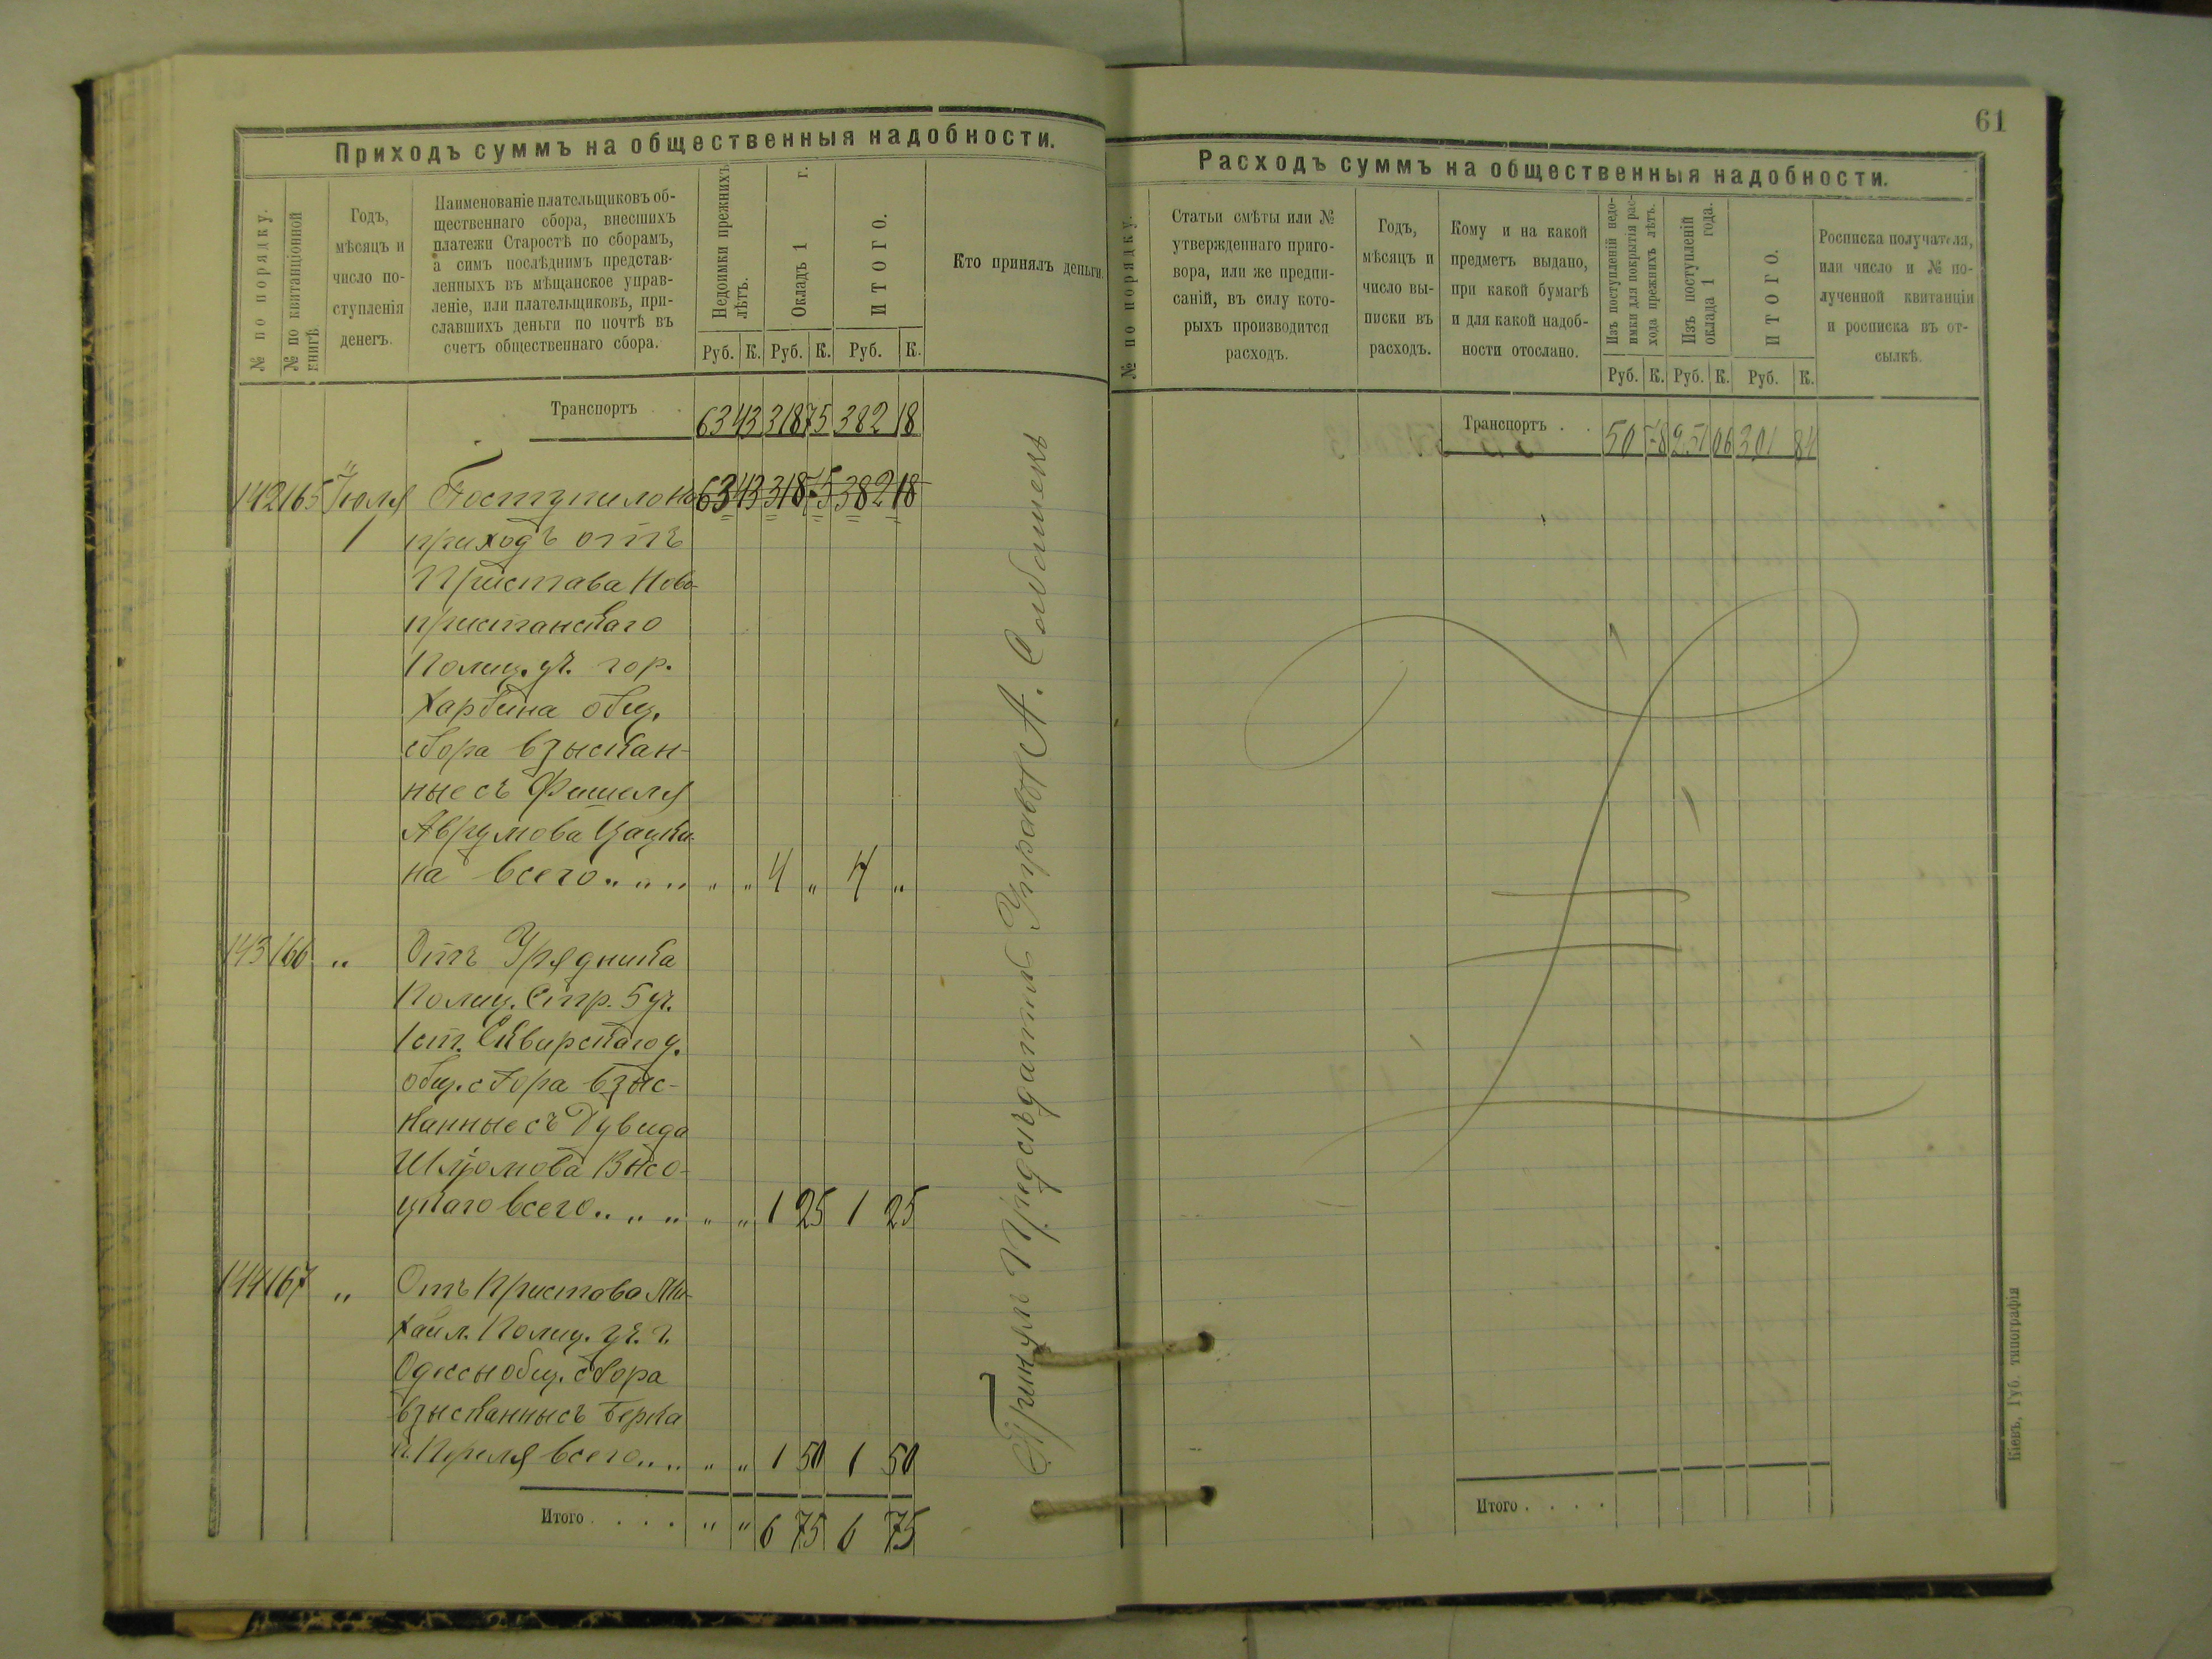 Приходъ суммъ на общественныя надобности.
№ по порядку.
№ по квитанціонной
книгѣ
Годъ,
мѣсяцъ и
число по-
ступленія
денегъ.
Наименованіе плательщиковъ об-
щественнаго сбора, внесшихъ
платежи Старостѣ по сборамъ,
а симъ послѣднимъ представ-
ленныхъ въ мѣщанское управ-
леніе, или плательщиковъ, при-
славшихъ деньги по почтѣ въ
счетъ общественнаго сбора.
Недоимки прежнихъ
лѣтъ.
Окладъ 1 г.
ИТОГО.
Кто принялъ деньги.
Руб. К. Руб. К. Руб. К.
Транспортъ 63 43 318 75 382 18
142 165 Іюля Поступило на 63 43 318 75 382 18
1 приходъ отъ
Пристава Ново-
пристанскаго
Полиц. уч. гор.
Харбина общ.
сбора взыскан-
ные съ Фишеля
Аврумова Цацки-
на всего „ „ 4 „ 4 „
143 166 „ Отъ Урядника
Полиц. Стр. 5 уч.
1 ст. Сквирскаго у.
общ. сбора взыс-
канные съ Дувида
Шлёмова Высо-
цкаго всего „ „ 1 25 1 25
144 167 „ Отъ Пристава Ми-
хайл. Полиц. уч. г.
Одессы общ. сбора
взысканные съ Берка
Переля всего „ „ 1 50 1 50
Итого . . . . „ „ 6 75 6 75
Принялъ Предсѣдатель Управы А.
61
Расходъ суммъ на общественныя надобности.
№ по порядку.
Статьи смѣты или №
утвержденнаго приго-
вора, или же предпи-
саній, въ силу кото-
рыхъ производится
расходъ.
Годъ,
мѣсяцъ и
число вы-
писки въ
расходъ.
Кому и на какой
предметъ выдано,
при какой бумагѣ
и для какой надоб-
ности отослано.
Изъ поступленій недо-
имки для покрытія рас-
хода прежнихъ лѣтъ.
Изъ поступленій
оклада 1 года.
ИТОГО.
Росписка получателя,
или число и № по-
лученной квитанціи
и росписка въ от-
сылкѣ.
Руб. К. Руб. К. Руб. К.
Транспортъ . . 50 78 251 06 301 84
Итого . . . .
Кіевъ, Губ. типографія